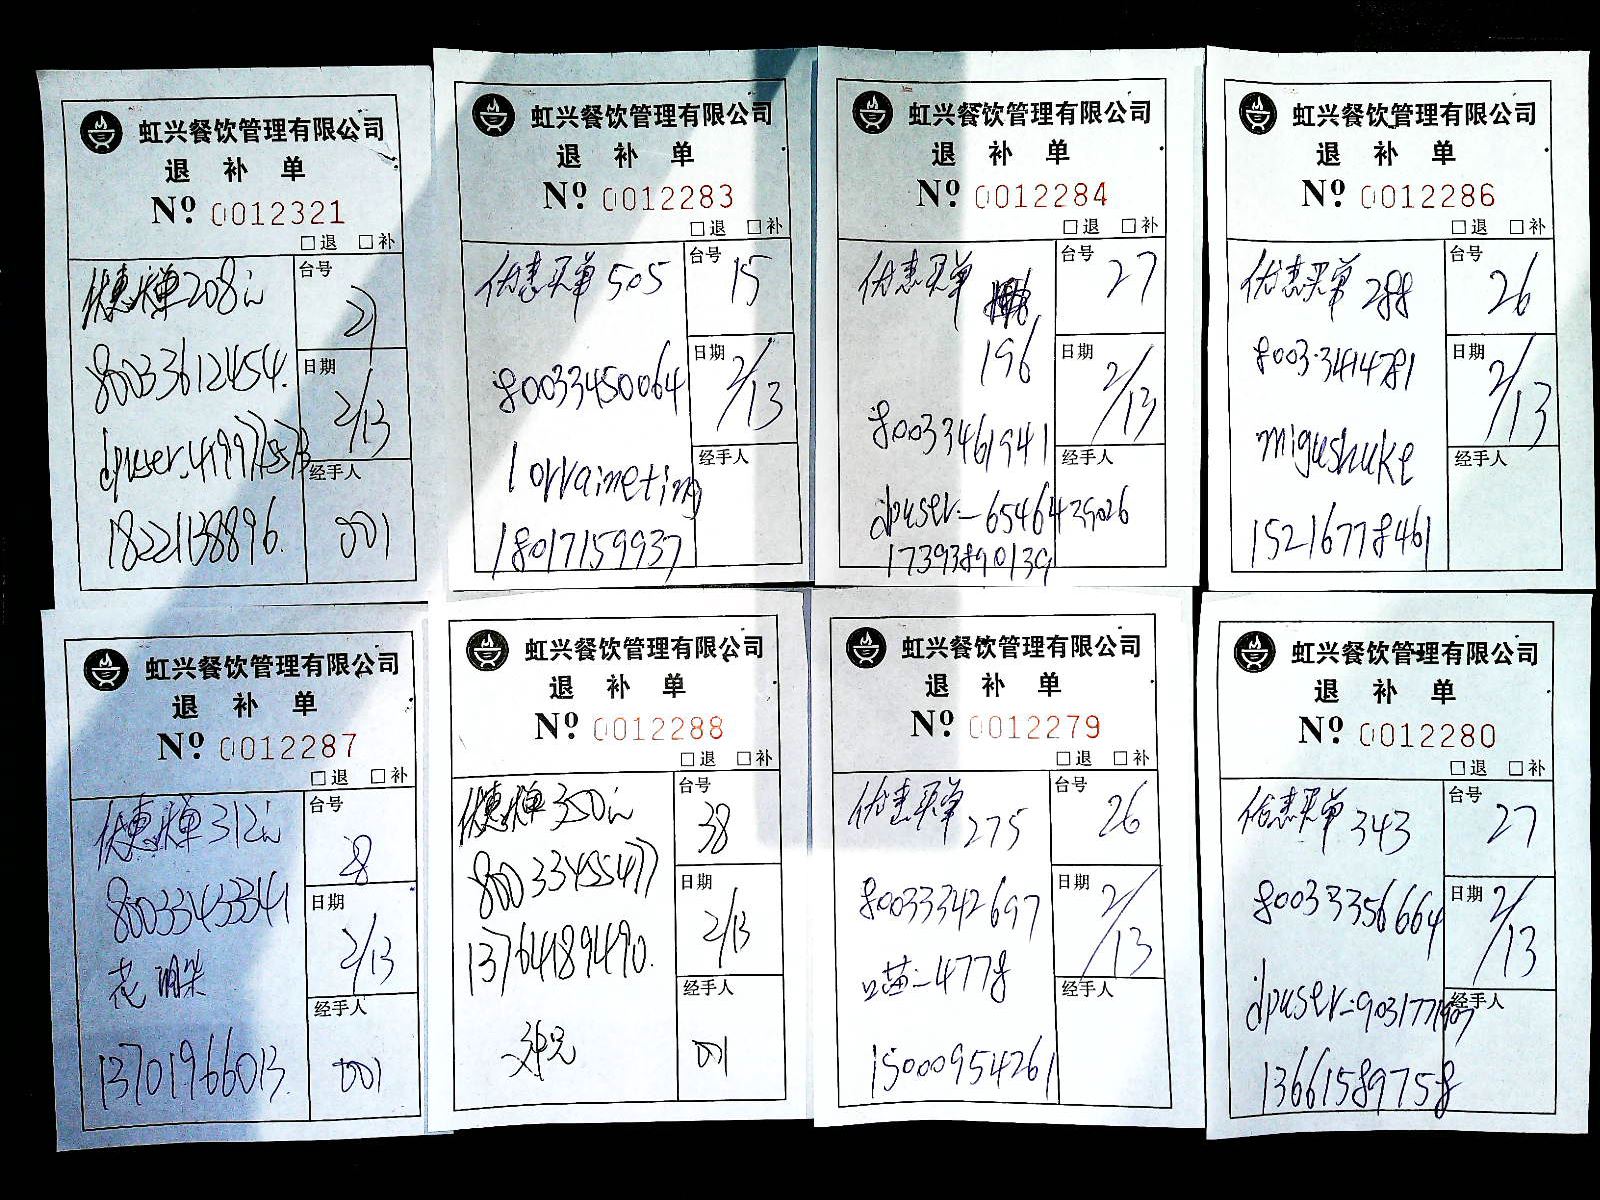 虹兴餐饮管理有限公司
退 补 单
Nº 0012321
□退 □补
优惠买单208元
台号
21
80033612454.
日期
2/13
经手人
18221138896.
001
虹兴餐饮管理有限公司
退 补 单
Nº 0012283
□退 □补
优惠买单 505
台号
15
80033450064
日期
2/13
lorraineting
经手人
18017159937
虹兴餐饮管理有限公司
退 补 单
Nº 0012284
□退 □补
优惠买单
台号
27
196
日期
2/13
80033461941
经手人
dpuser-6546439026
17393890139
虹兴餐饮管理有限公司
退 补 单
Nº 0012286
□退 □补
优惠买单 288
台号
26
8003·3414781
日期
2/13
migushuke
经手人
15216778461
虹兴餐饮管理有限公司
退 补 单
Nº 0012287
□退 □补
优惠买单312元
台号
28
80033433341
日期
2/13
花
经手人
13701966013.
001
虹兴餐饮管理有限公司
退 补 单
Nº 0012288
□退 □补
优惠买单350元
台号
38
80033455477
日期
2/13
13764189490.
经手人
001
虹兴餐饮管理有限公司
退 补 单
Nº 0012279
□退 □补
优惠买单 275
台号
26
80033342697
日期
2/13
喵-4778
经手人
15000954261
虹兴餐饮管理有限公司
退 补 单
Nº 0012280
□退 □补
优惠买单 343
台号
27
80033356664
日期
2/13
经手人
13661589758